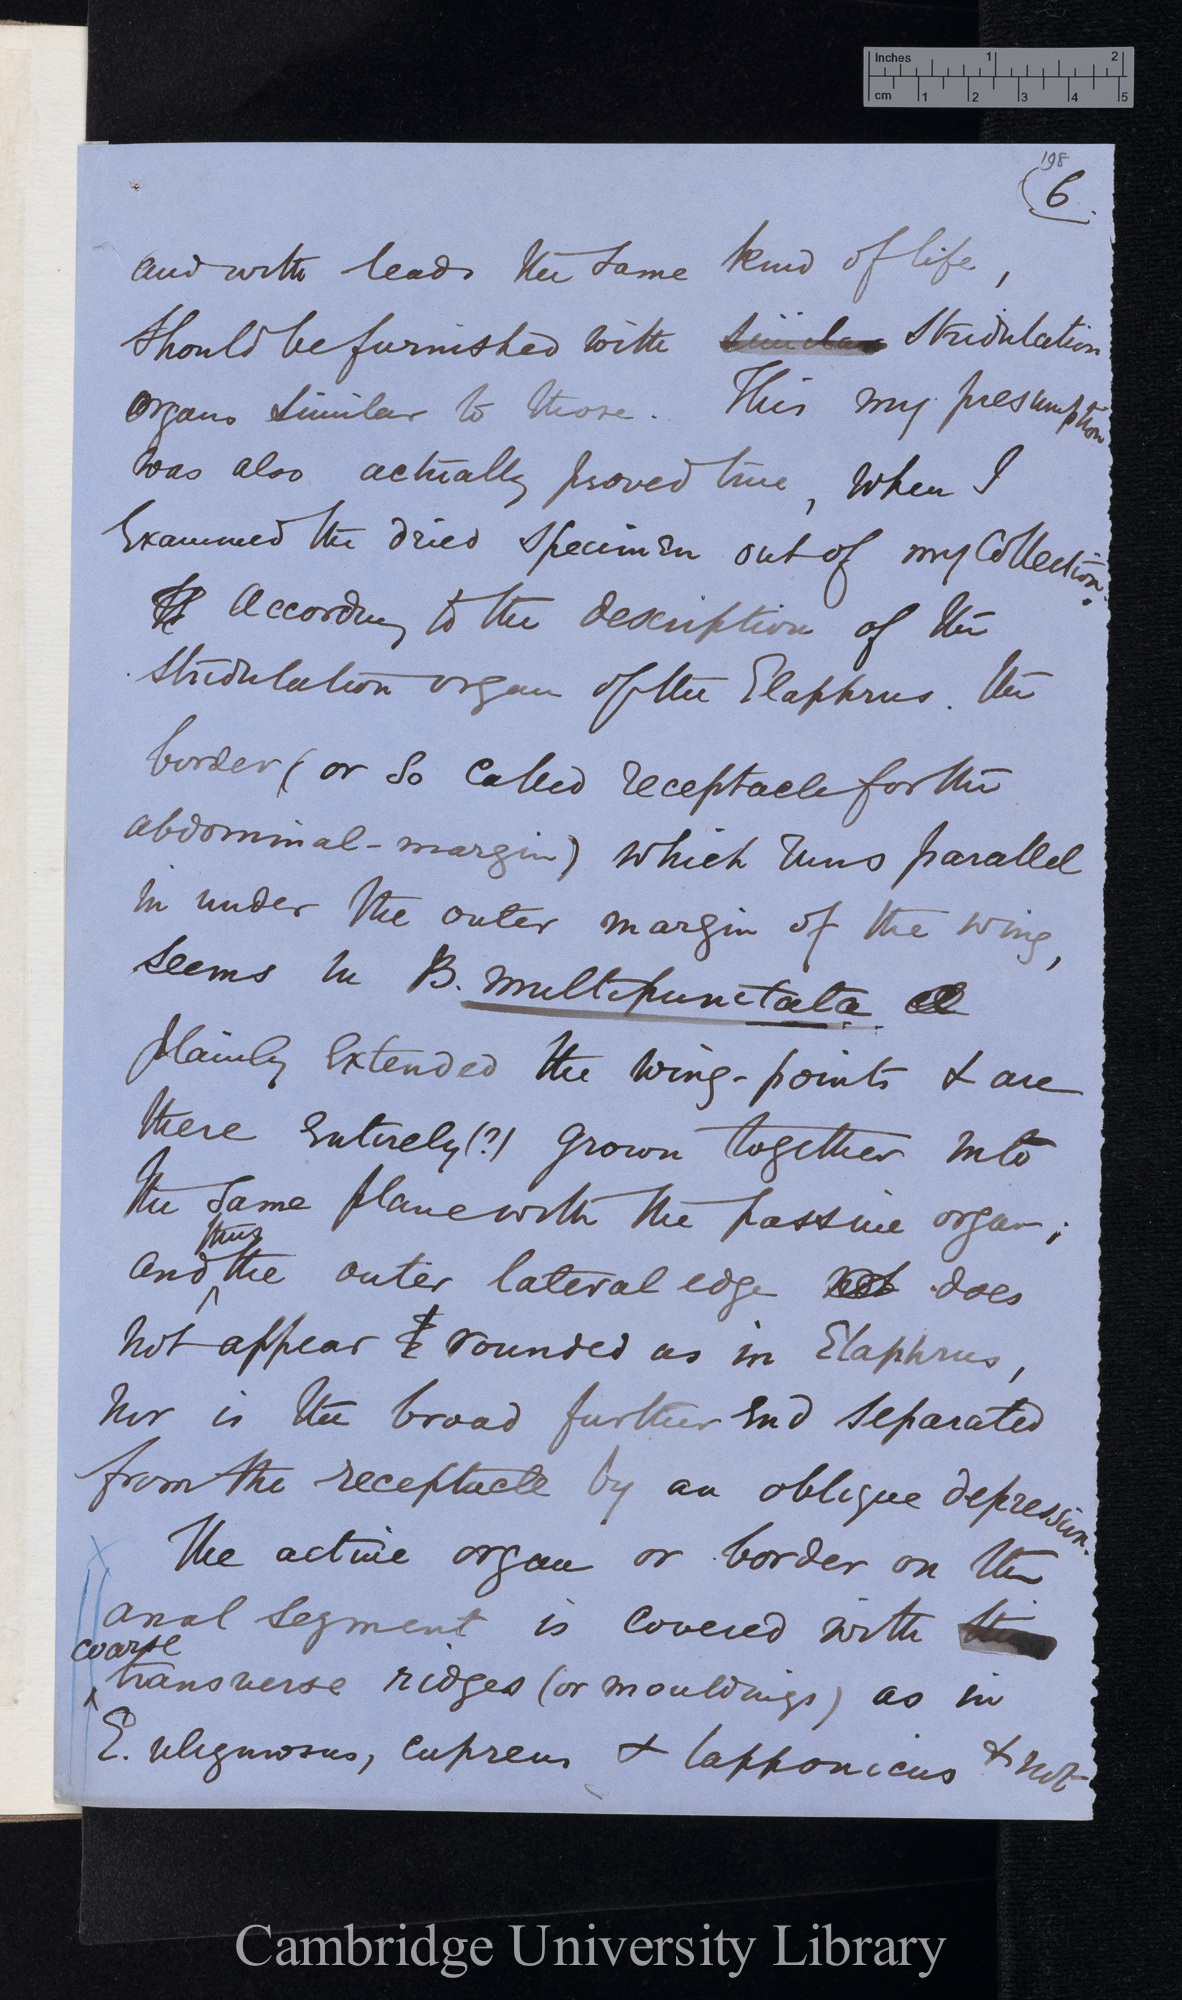 Inches 1 2
cm 1 2 3 4 5
198
6
and with leads the same kind of life,
should be furnished with similar stridulation
organs similar to those. This my presumption
was also actually proved true, when I
examined the dried specimen out of my collection.
According to the description of the
stridulation organ of the Elaphrus. the
border (or so called receptacle for the
abdominal-margin) which runs parallel
in under the outer margin of the wing,
seems in B. multipunctata
plainly extended the wing-points & are
there entirely (?) grown together into
the same plane with the passive organ;
thus
and the outer lateral edge not does
not appear rounded as in Elaphrus,
nor is the broad further end separated
from the receptacle by an oblique depression.
The active organ or border on the
anal segment is covered with
coarse
transverse ridges (or mouldings) as in
E. uliginosus, cupreus & lapponicus & not
Cambridge University Library